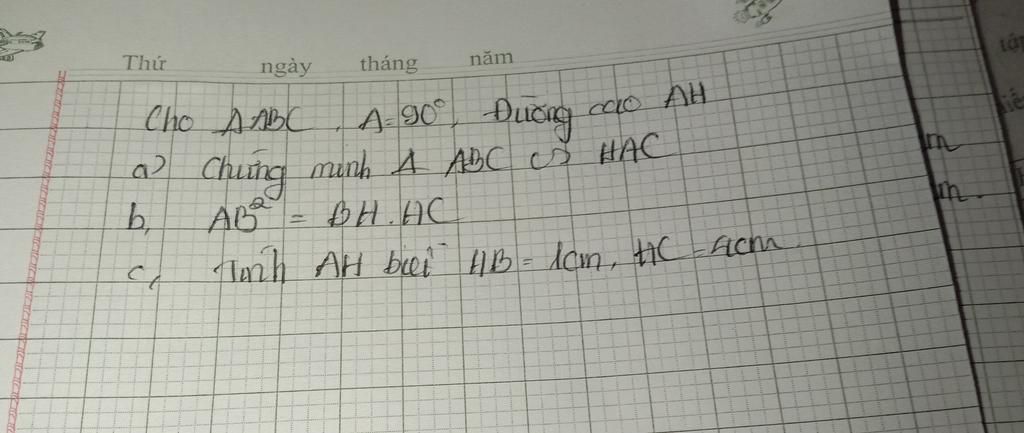 Thứ ngày tháng năm
Cho ΔABC, A=90°, Đường cao AH
a) Chứng minh Δ ABC ∽ HAC
b, AB² = BH.HC
c, Tính AH biết HB = 1cm, HC = 4cm
m
m